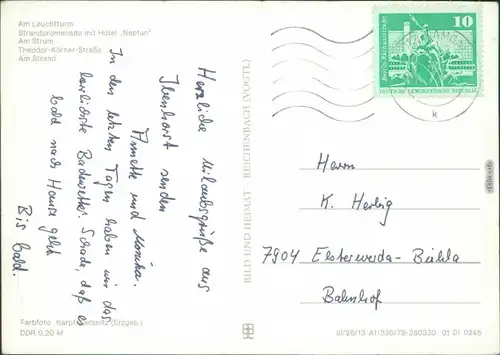 Am Leuchtturm
Strandpromenade mit Hotel „Neptun“
Am Strom
Theodor-Körner-Straße
Am Strand
Herzliche Urlaubsgrüße aus
senden
Annette und Monika.
In den letzten Tagen haben wir das
herrlichste Badewetter. Schade, daß es
bald nach Hause geht
Bis bald.
BILD UND HEIMAT REICHENBACH (VOGTL)
10
DEUTSCHE DEMOKRATISCHE REPUBLIK
k
Herrn
K. Herbig
7904 Elsterwerda-Biehla
Bahnhof
Farbfoto: Karpf (Erzgeb.)
DDR 0,20 M
III/26/13 A1/330/78-280330 01 01 0245